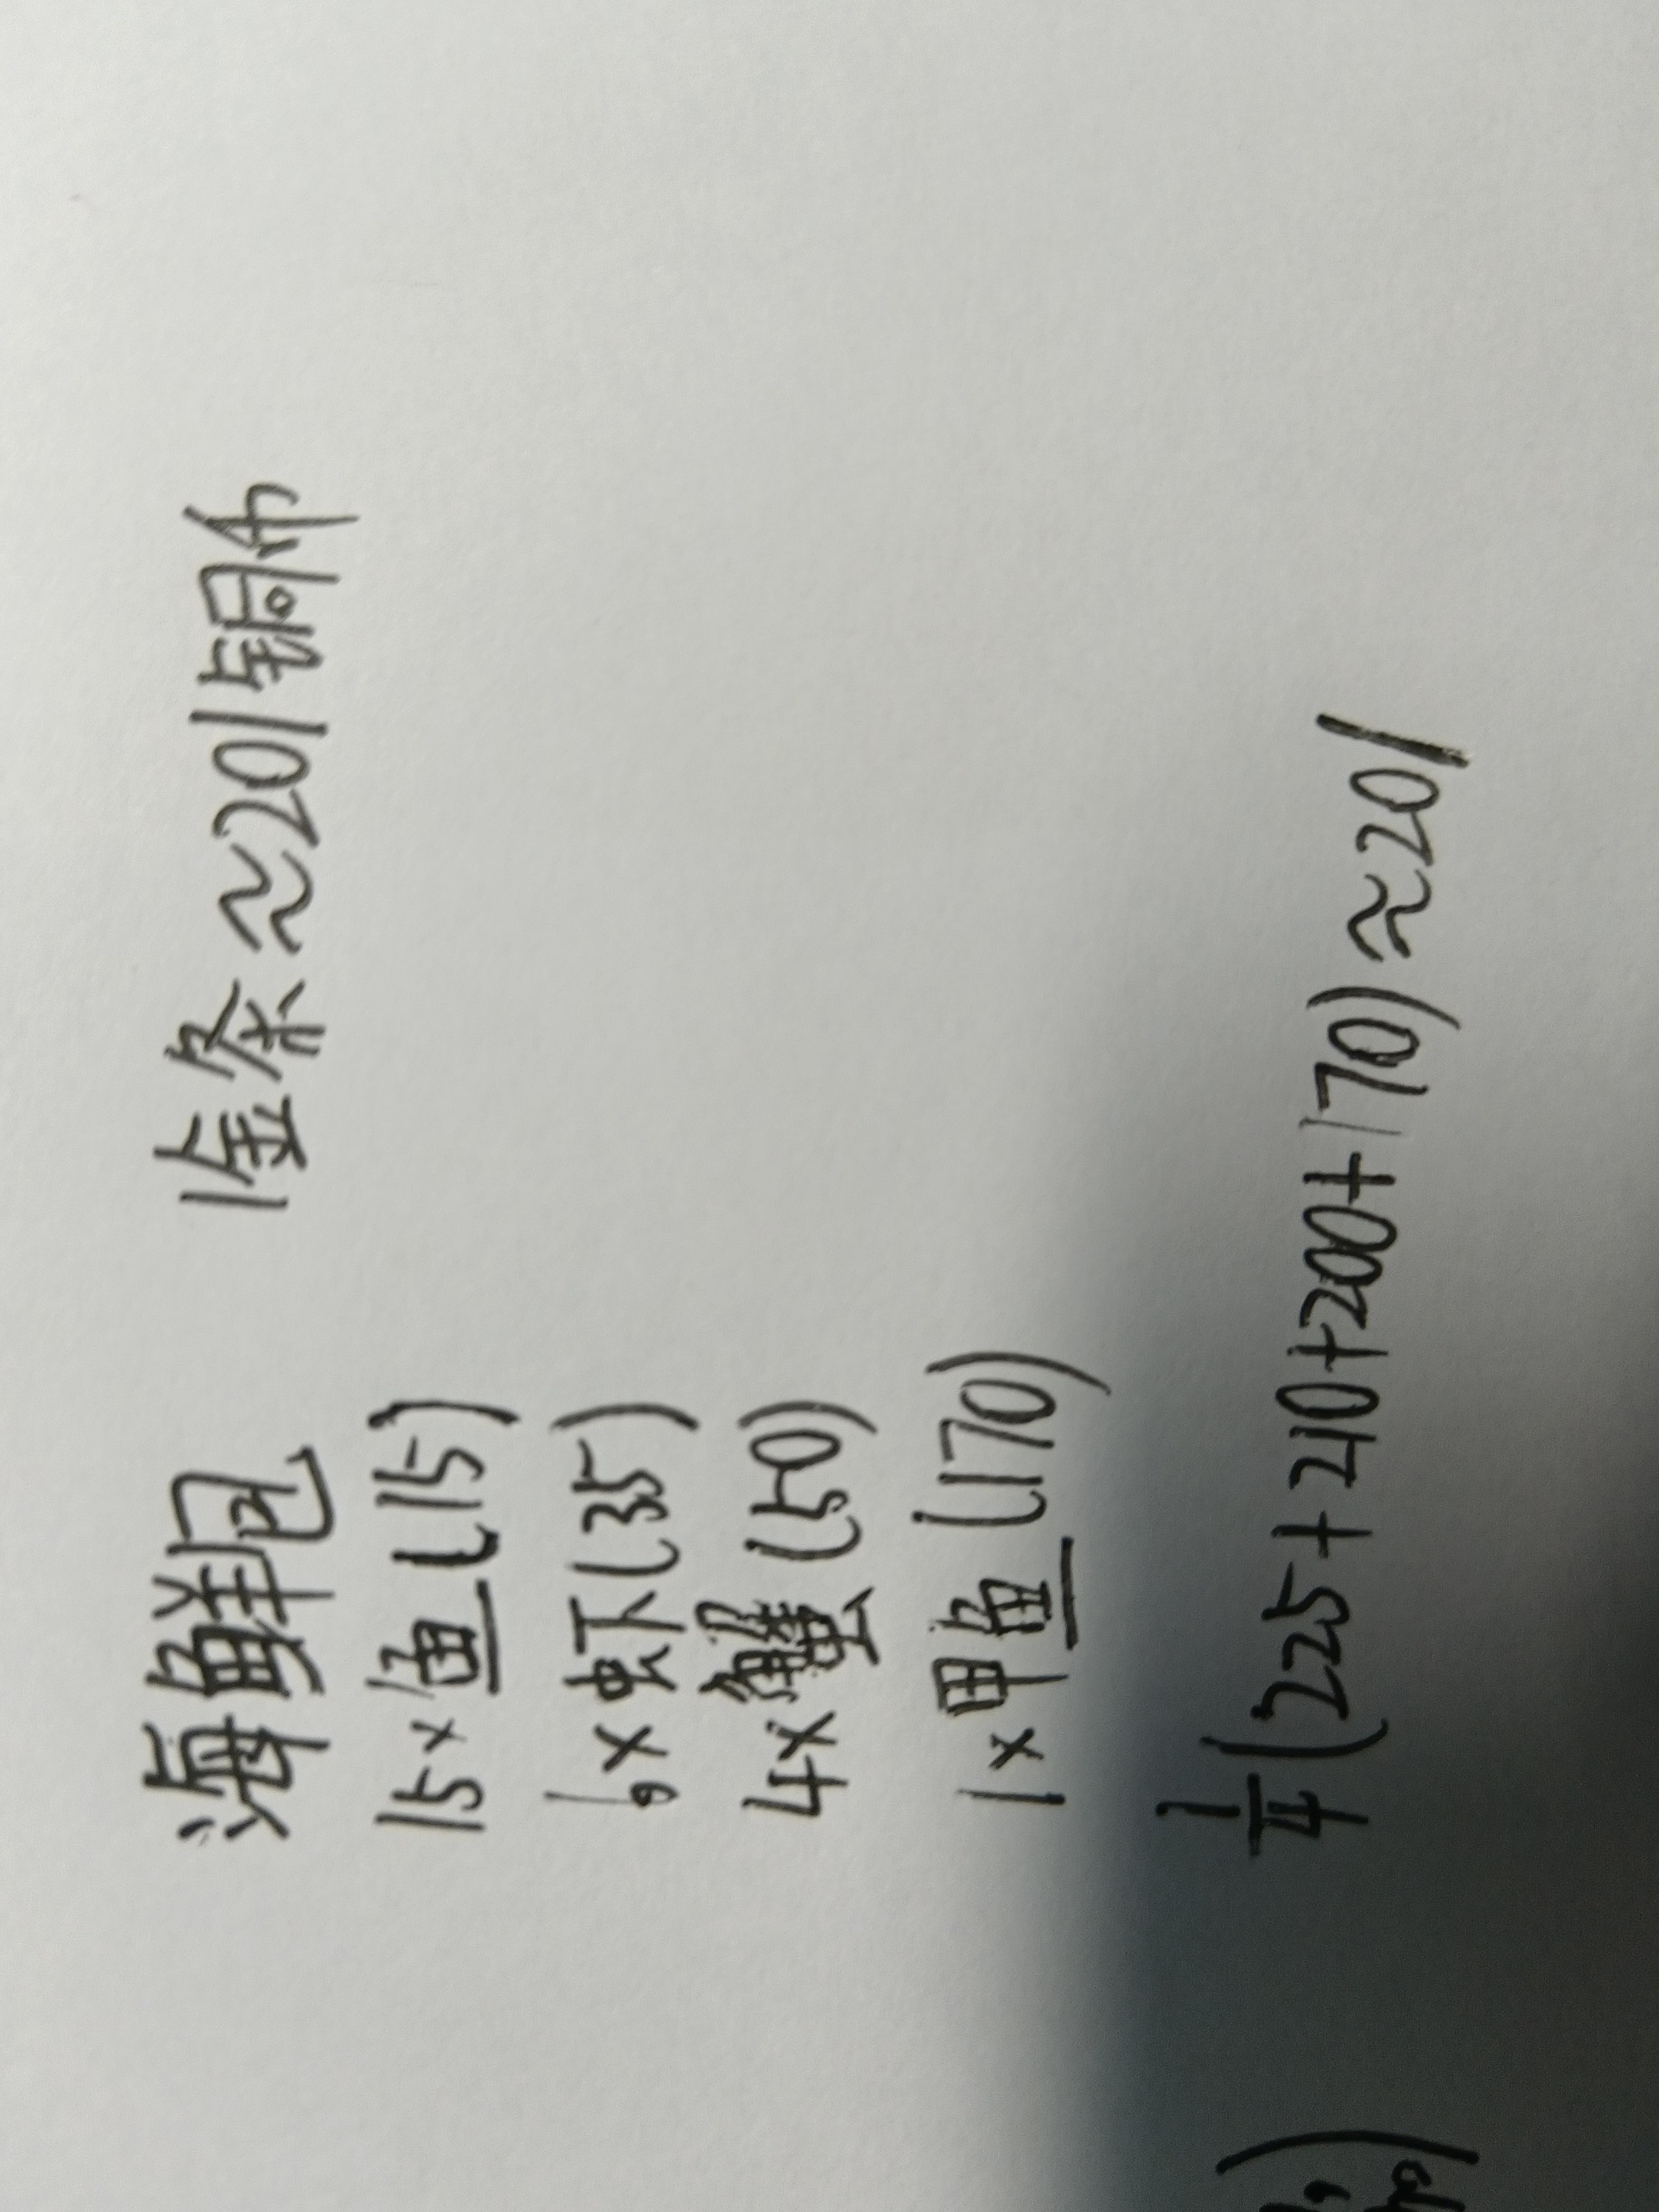 海鲜包 1金条≈201铜币
15×鱼(15)
6×虾(35)
4×蟹(50)
1×甲鱼(170)
1/4(225+210+200+170)≈201